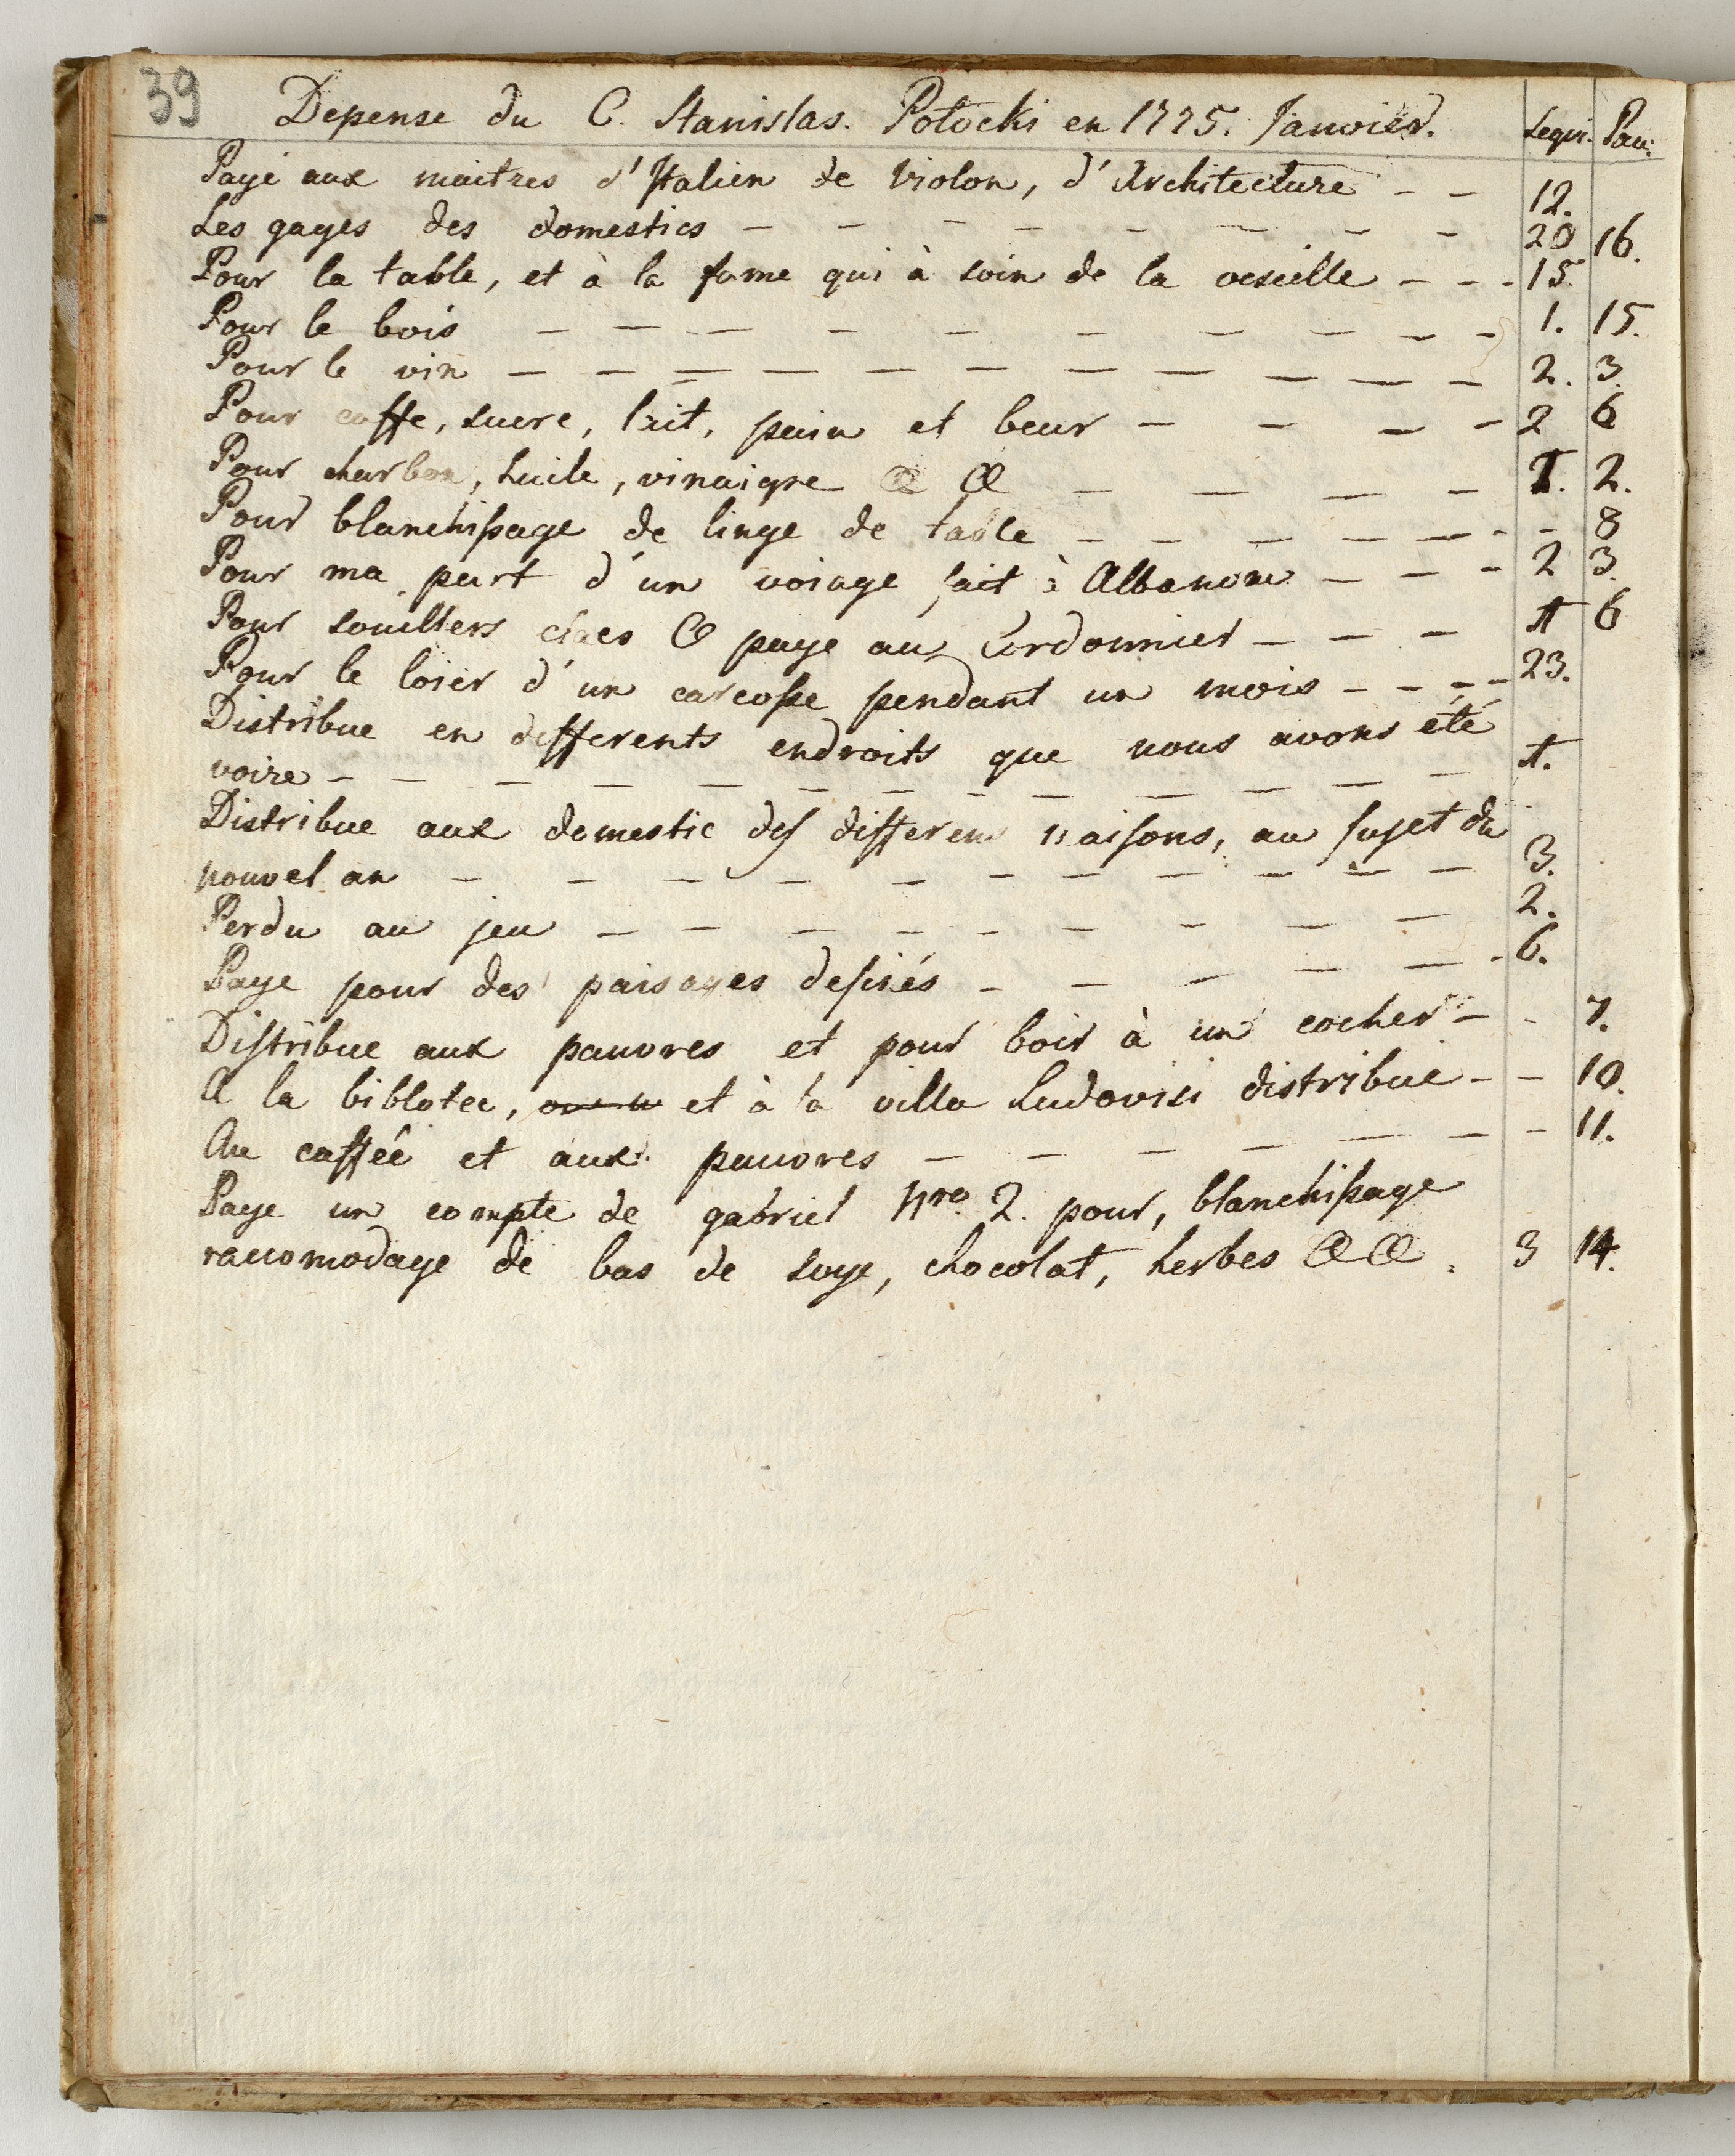 39
Depense du C. Stanislas. Potocki en 1775. Janvier. Sequi. Pau:
Payé aux maitres d'Italien de Violon, d'Architecture - - 12.
Les gages des domestics - - - - - - - - 20 16.
Pour la table, et à la fame qui à soin de la veseille - - - 15.
Pour le bois - - - - - - - - - - 1. 15.
Pour le vin - - - - - - - - - - - 2. 3.
Pour caffe, sucre, lait, pain et beur - - - - 2 6
Pour charbon, huile, vinaigre & & - - - - 1. 2.
Pour blanchissage de linge de table - - - - - - - 8
Pour ma part d'un voiage fait à Albanone - - - 2 3.
Pour souilliers & paye au Cordonnier - - - 1 6
Pour le loier d'un carcosse pendant un mois - - - - 23.
Distribue en differents endroits que nous avons été
voire - - - - - - - - - - - - 1.
Distribue aux domestic des differens maisons, au sujet du
nouvel an - - - - - - - - - - - 3.
Perdu au jeu - - - - - - - - - 2.
Paye pour des paisages desinés - - - - - - 6.
Distribue aux pauvres et pour boir à un cocher - - 7.
A la biblotec, et à la villa Ludovisi distribué - - 10.
Au cafféé et aux pauvres - - - - - - - 11.
Paye un compte de gabriel Nro. 2. pour, blanchissage
raccomodage de bas de soye, chocolat, herbes & & . 3 14.